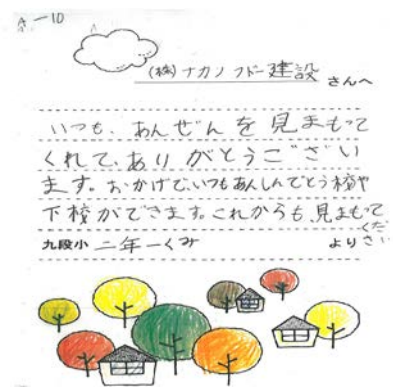 A-10
(株)ナカノフドー建設 さんへ
いつも、あんぜんを見まもって
くれて、ありがとうござい
ます。おかげで、いつもあんしんでとう校や
下校ができます。これからも、見まもって
ください
九段小 二年一くみ より